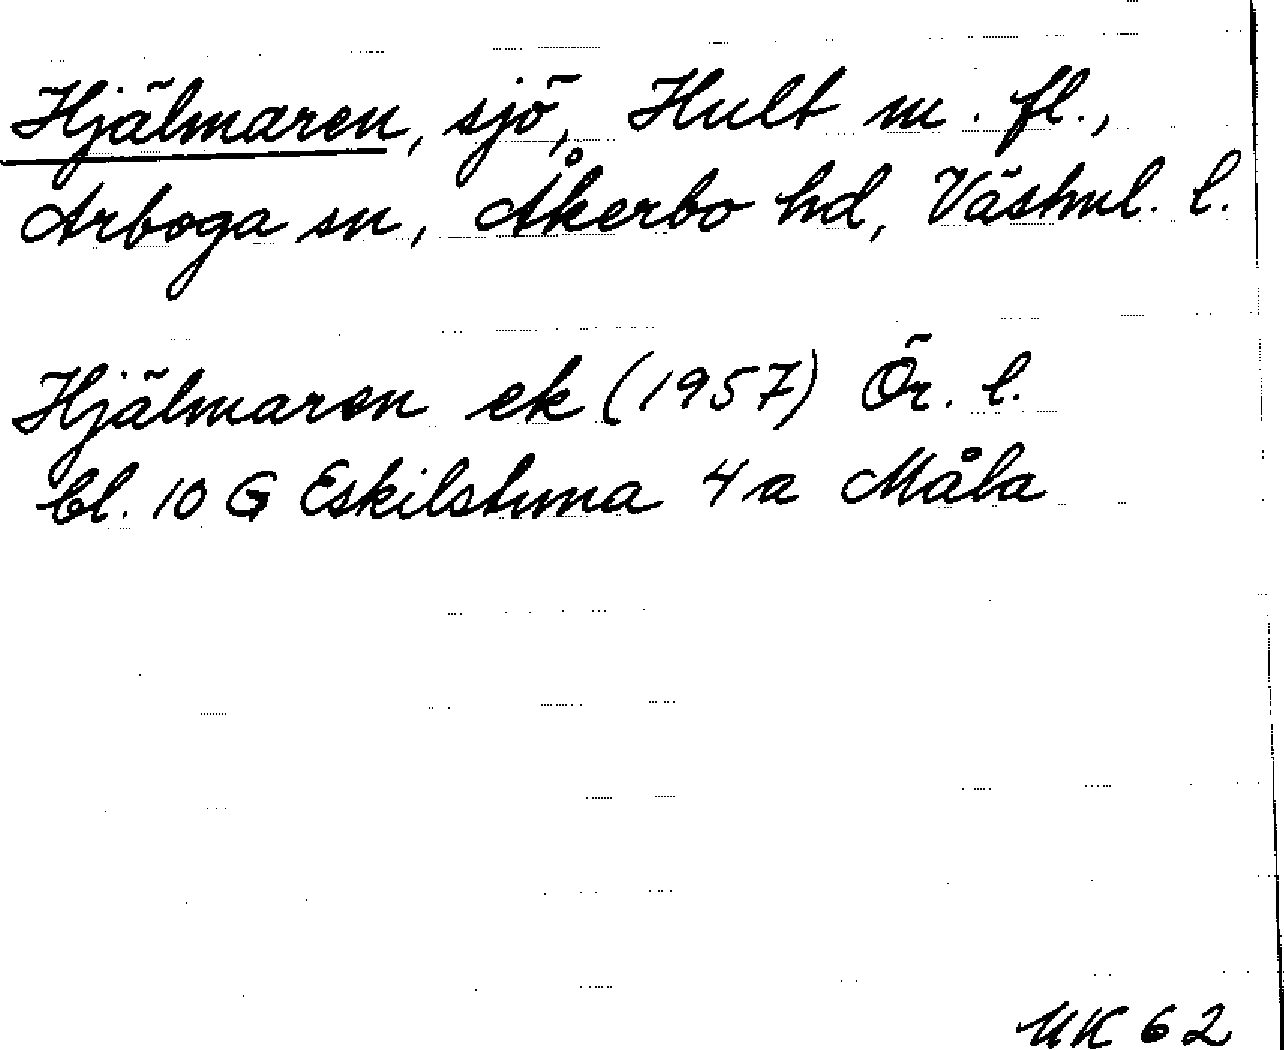 Hjälmaren, sjö, Hult m. fl.,
Arboga sn, Åkerbo hd, Västml. l.
Hjälmaren ek (1957) Ör. l.
bl. 10 G Eskilstuna 4 a Måla
UK 62